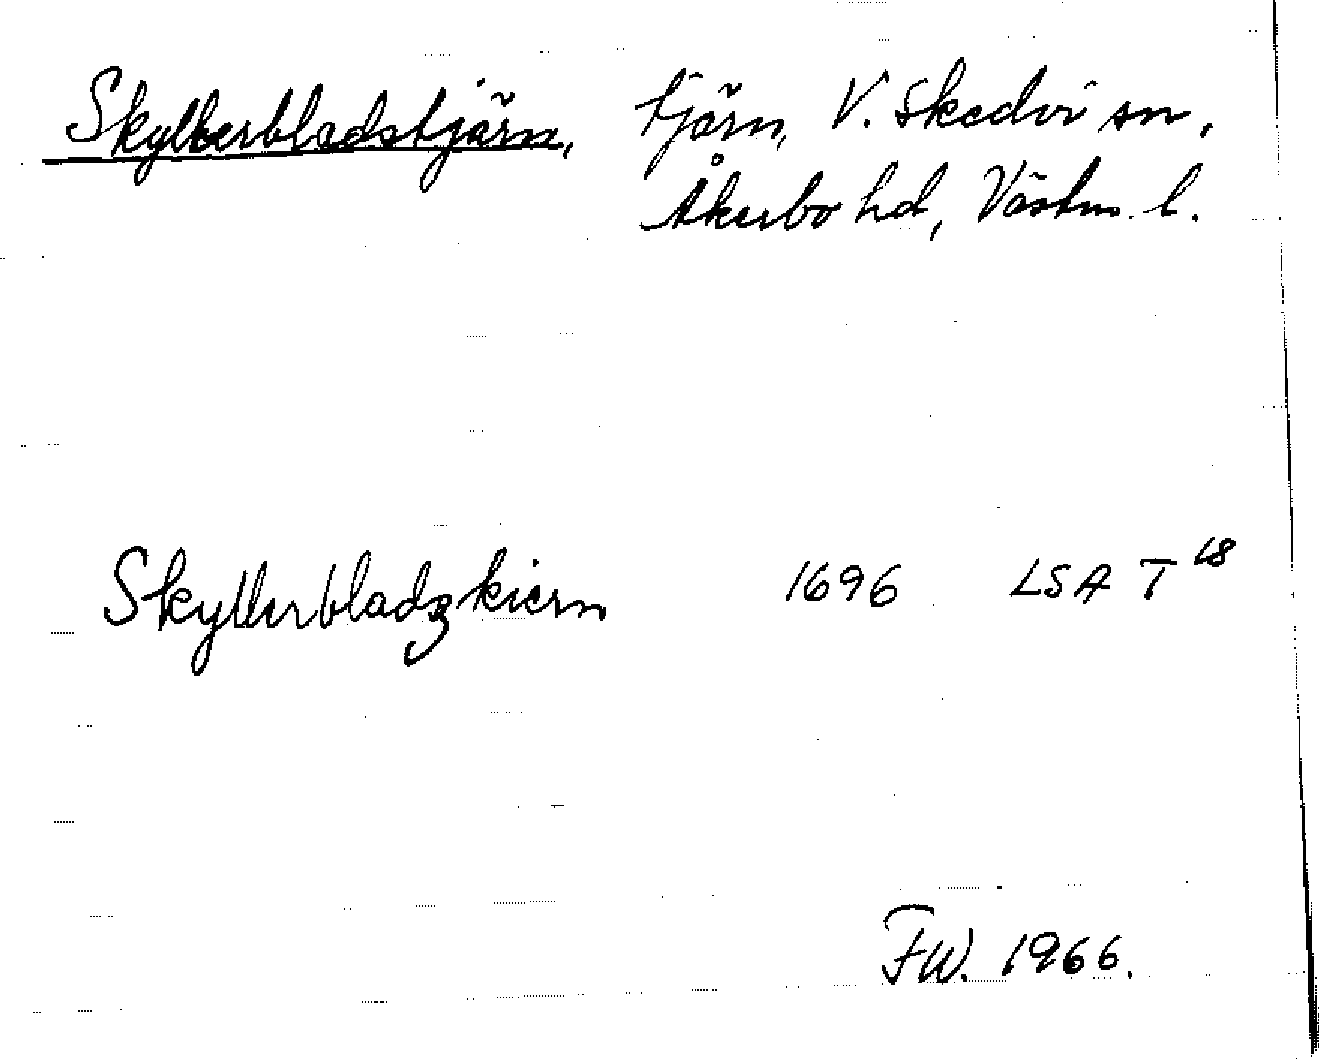 Skyllerbladstjärn, tjärn, V. Skedvi sn,
Åkerbo hd, Västm. l.
Skyllerbladzkiern 1696 LSA T 18
FW. 1966.